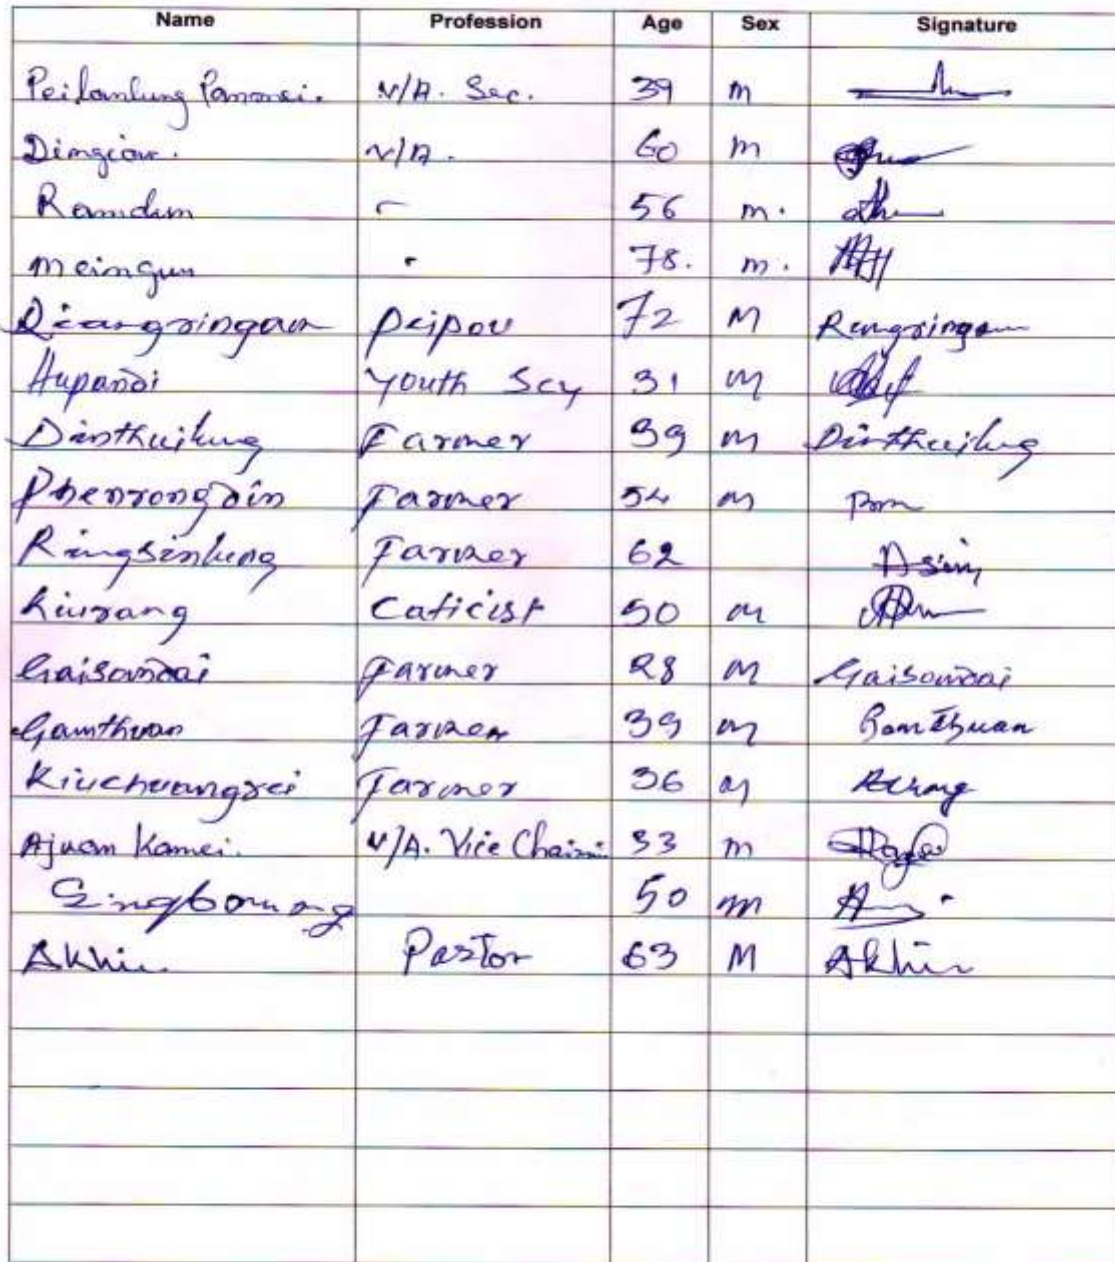 Name Profession Age Sex Signature
Peilanlung Panmei. N/A. Sec. 39 m
Dimgiam. N/A. 60 m
Ramdim - 56 m.
meingun 78. m.
Diangringam Peipou 72 M
Hupandi Youth Scy 31 m
Dinthuilung Farmer 39 m Dinthuilung
Phenrongdin Farmer 54 m
Ringsinlung Farmer 62 Asin
Kiurang Caticist 50 m
Gaisandai Farmer 28 m Gaisandai
Gamthuan Farmer 39 m Gamthuan
Kiuchuangrei Farmer 36 m
Ajuam Kamei. N/A. Vice Chairm. 33 m
50 m
Akhiu Pastor 63 M Akhiu